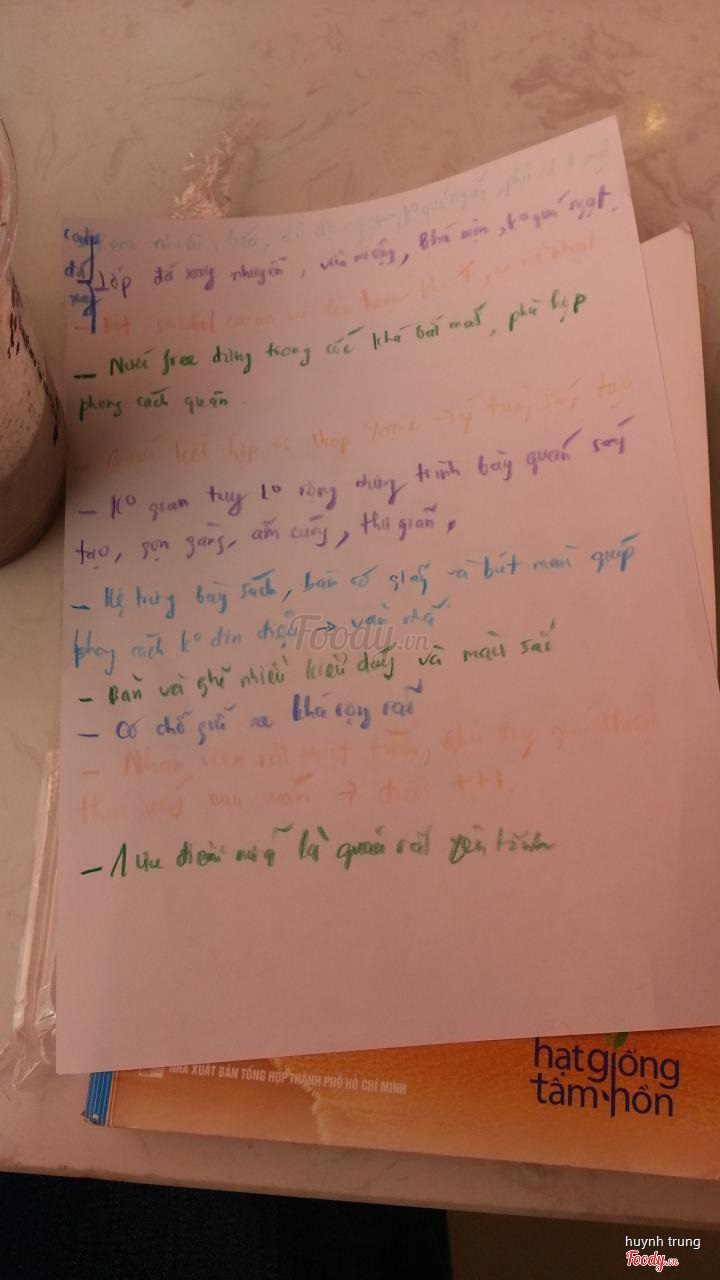 kem nhiều, béo,
đá
Lớp đá xay nhuyễn, vừa miệng, khá mịn, ko quá ngọt.
- Nước free đựng trong cốc khá bắt mắt, phù hợp
phong cách quán.
- Quán kết hợp vs shop Yame → ý tưởng sáng tạo
- Ko gian tuy ko rộng nhưng trình bày quán sáng
tạo, gọn gàng, ấm cúng, thư giãn,
- Kệ trưng bày sách, bàn có giấy và bút màu giúp
phong cách ko đơn điệu →
- Bàn và ghế nhiều kiểu dáng và màu sắc
- Có chỗ giữ xe khá rộng rãi
- Nhân viên rất nhiệt tình,
thức uống → điểm +++
- 1 ưu điểm nữa là quán rất yên tĩnh
Foody.vn
NHÀ XUẤT BẢN TỔNG HỢP THÀNH PHỐ HỒ CHÍ MINH
hạt giống
tâm hồn
huynh trung
Foody.vn